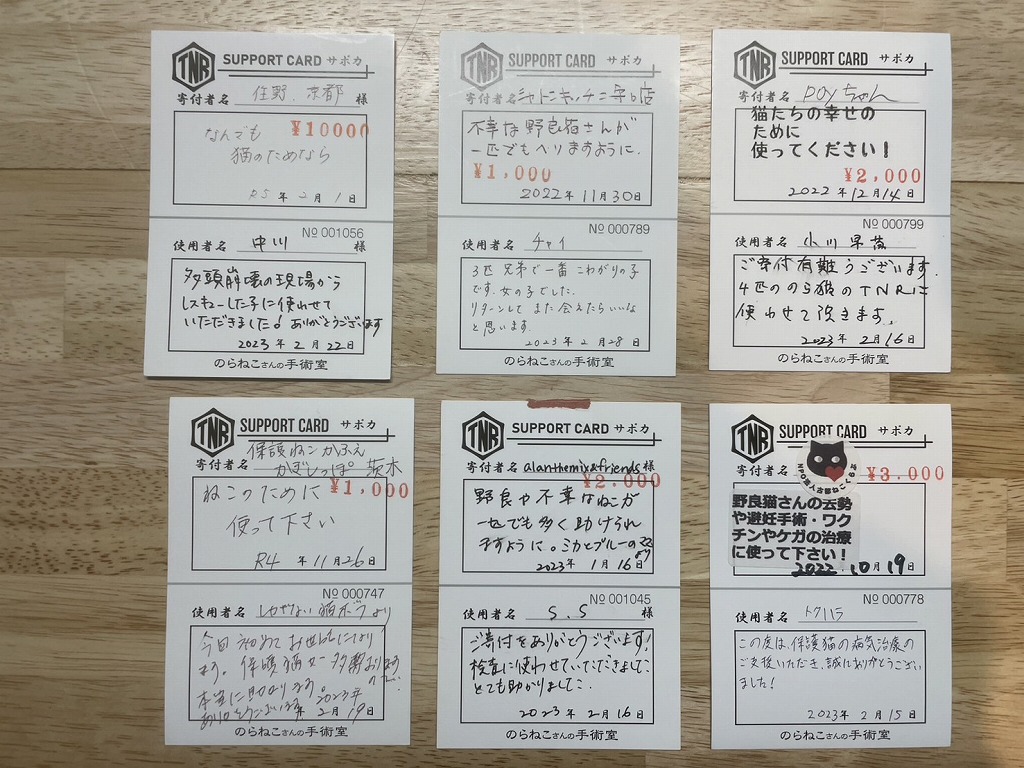 TNR SUPPORT CARD サポカ
寄付者名 住野、京都 様
なんでも ¥10000
猫のためなら
R5 年 2 月 1 日
№ 001056
使用者名 中川 様
多頭崩壊の現場から
レスキューした子に使わせて
いただきました! ありがとうございます
2023 年 2 月 22 日
のらねこさんの手術室
TNR SUPPORT CARD サポカ
寄付者名
不幸な野良猫さんが
一匹でもへりますように、
¥1,000
2022 年 11 月 30 日
№ 000789
使用者名 チャイ
3匹 兄弟で一番 こわがりの子
です。女の子でした。
リターンして また会えたらいいな
と思います。
2023 年 2 月 28 日
のらねこさんの手術室
TNR SUPPORT CARD サポカ
寄付者名 poyちゃん
猫たちの幸せの
ために
使ってください!
¥2,000
2022 年 12 月 14 日
№ 000799
使用者名 小川
ご寄付有難うございます。
4匹ののら猫のTNRに
使わせて頂きます。
2023 年 2 月 16 日
のらねこさんの手術室
TNR SUPPORT CARD サポカ
保護ねこかふぇ
寄付者名 かぎしっぽ 茨木
ねこのために ¥1,000
使って下さい
R4 年 11 月 26 日
№ 000747
使用者名 しかたない猫ボラより
今日初めてお世話になり
ます。保護猫が多頭おります
ので、
本当に助かります。
ありがとうございます。 2023 年
2 月 19 日
のらねこさんの手術室
TNR SUPPORT CARD サポカ
寄付者名 alanthemix&friends 様
¥2,000
野良や不幸なねこが
一匹でも多く助けられ
ますように。ミカとブルーの
より
2023 年 1 月 16 日
№ 001045
使用者名 S.S 様
ご寄付をありがとうございます!
検査に使わせていただきまして、
とても助かりました。
2023 年 2 月 16 日
のらねこさんの手術室
TNR SUPPORT CARD サポカ
寄付者名 ¥3,000
野良猫さんの去勢
や避妊手術・ワク
チンやケガの治療
に使って下さい!
2022 10 月 19 日
№ 000778
使用者名 トクハラ
この度は、保護猫の病気治療の
ご支援いただき、誠にありがとうござい
ました!
2023 年 2 月 15 日
のらねこさんの手術室